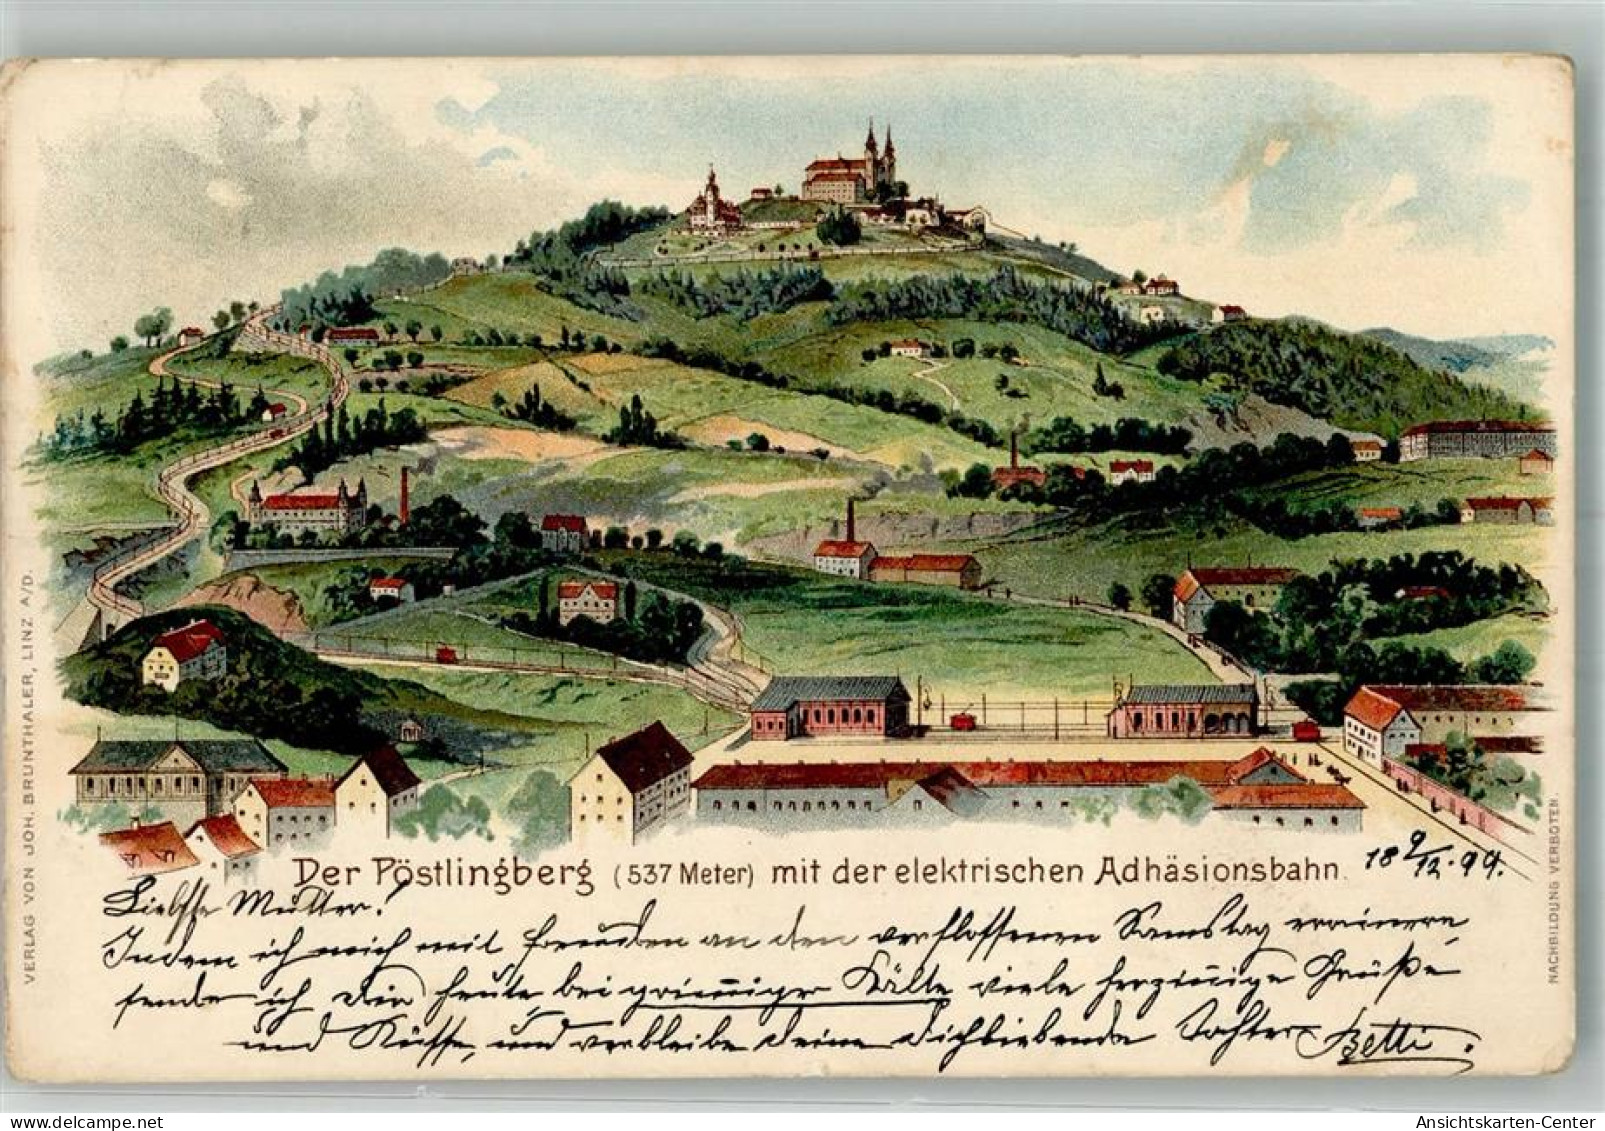 VERLAG VON JOH. BRUNTHALER, LINZ A/D.
NACHBILDUNG VERBOTEN.
Der Pöstlingberg (537 Meter) mit der elektrischen Adhäsionsbahn.
18 9/12. 99.
Liebste Mutter!
Indem ich mich mit Freuden an den verflossenen Samstag erinnere,
sende ich Dir heute bei grimmiger Kälte viele herzinnige Grüße
und Küsse, und verbleibe deine dichliebende Tochter Betti.
Ansichtskarten-Center